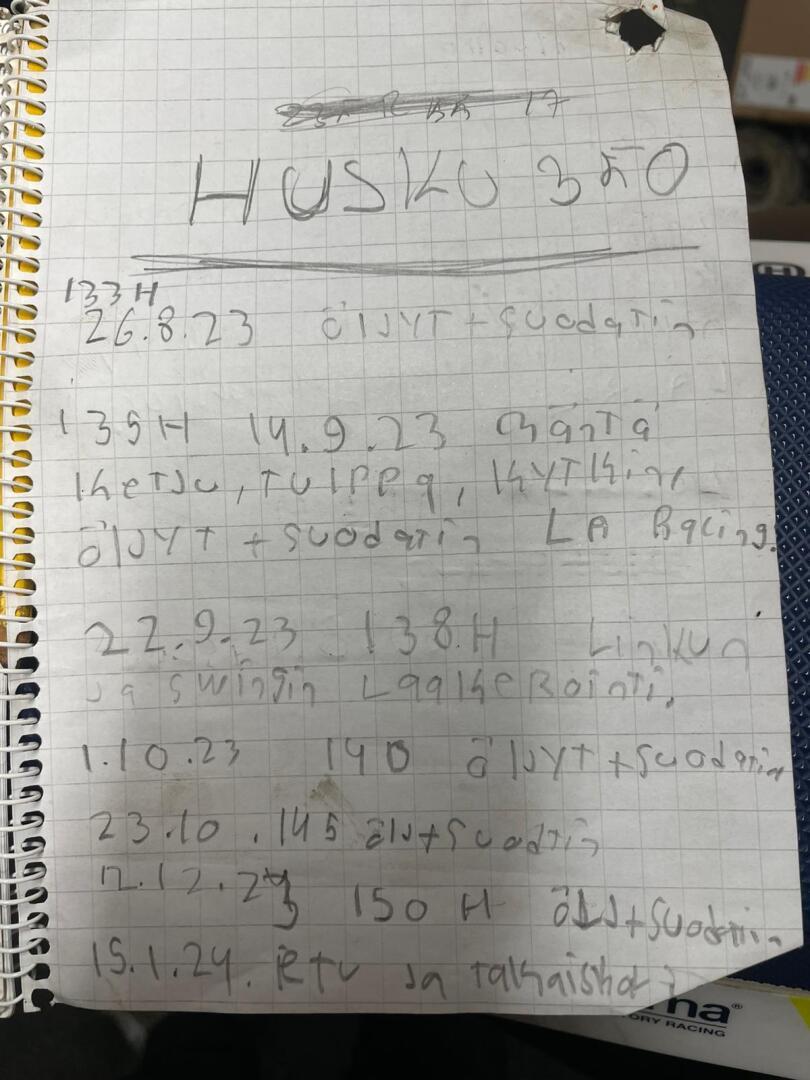 17
HUSKU 350
133H
26.8.23 öljyt + suodatin
135H 14.9.23 mäntä
Ketju, tulppa, Kytkin,
öljyt + suodatin LA Racing.
22.9.23 138.H Linkun
ja swingin Laakerointi.
1.10.23 140 öljyt + suodatin
23.10.145 ölj + suodtin
12.12.23 150 H ölj + suodatin
15.1.24. Etu ja takaiskari
rna®
ORY RACING